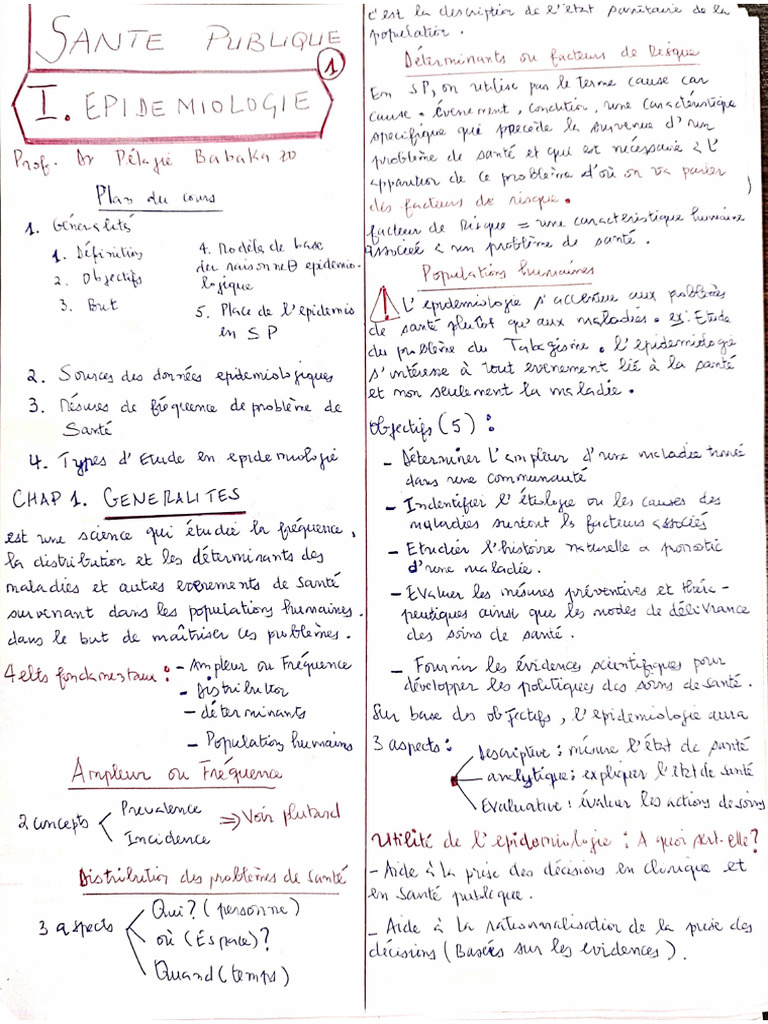 SANTE PUBLIQUE
1
I. EPIDEMIOLOGIE
Prof. Dr Pélagie Babaka
Plan du cours
1. Généralités
1. Définition
2. Objectifs
3. But
4. Modèle de base
du raisonneθ epidémio-
logique
5. Place de l'epidemio
en SP
2. Sources des données epidémiologiques
3. Mésures de fréquence de problème de
Santé
4. Types d'Etude en epidemiologie
CHAP 1. GENERALITES
est une science qui étudie la fréquence,
la distribution et les déterminants des
maladies et autres evenements de santé
survenant dans les populations humaines.
dans le but de maîtriser ces problèmes.
4 elts fondamentaux : - Ampleur ou Fréquence
- Distributor
- déterminants
- Populations humains
Ampleur ou Fréquence
2 concepts
Prevalence
Incidence
⇒ Voir plutard
Distribution des problèmes de santé
3 aspects
Qui? (personne)
où (Espace)?
Quand (temps)
c'est la description de l'état sanitaire de la
population.
Déterminants ou facteurs de Risque
Em SP, on utilise pas le terme cause car
cause = évenement, condition, une caractéristique
specifique qui precède la survenue d'un
problème de santé et qui est nécessaire à l'
apparition de ce problème d'où on va parler
des facteurs de risque.
facteur de Risque = une caractéristique humaine
associée à un problème de santé.
Populations humaines
! L'epidemiologie s'accentue aux problèmes
de santé plutôt qu'aux maladies. ex: Etude
du problème du Tabagisme. l'epidemiologie
s'intéresse à tout evenement lié à la santé
et non seulement la maladie.
Objectifs (5) :
- Déterminer l'ampleur d'une maladie
dans une communauté
- Indentifier l'étiologie ou les causes des
maladies surtout ls facteurs associés
- Etudier l'histoire naturelle
d'une maladie.
- Evaluer les mésures préventives et théra-
peutiques ainsi que les modes de délivrance
des soins de santé.
- Fournir les évidences scientifiques pour
développer les politiques des soins de santé.
Sur base des objectifs, l'epidemiologie aura
3 aspects :
Descriptive : mésure l'état de santé
analytique : expliquer l'état de santé
Evaluative : évaluer les actions de soins
Utilité de l'epidomiologie : A quoi sert-elle?
- Aide à la prise des décisions en clinique et
en santé publique.
- Aide à la rationnalisation de la prise des
décisions (Basées sur les evidences).